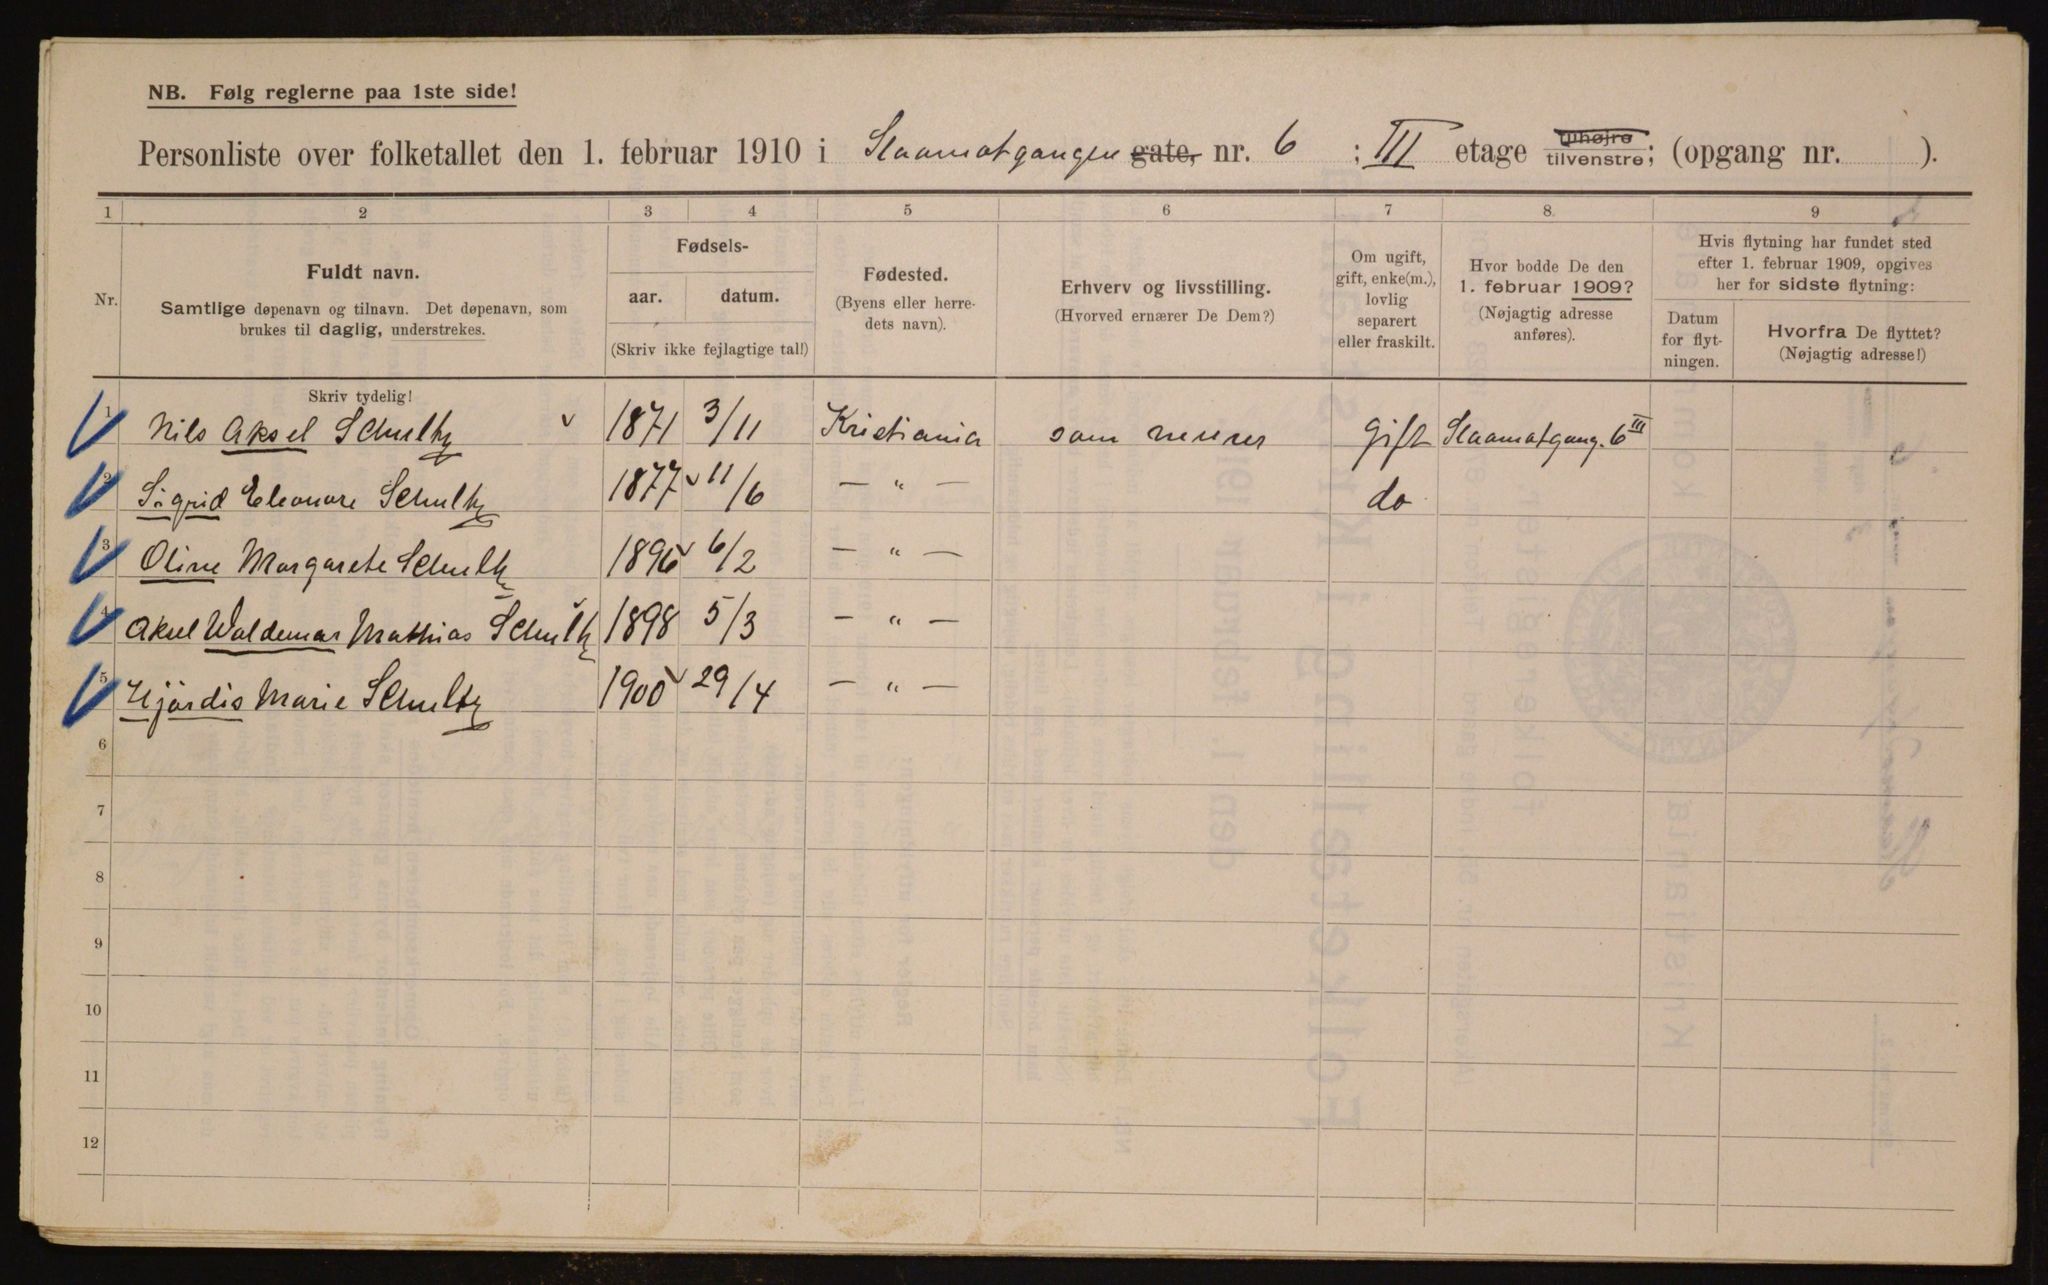 NB. Følg reglerne paa 1ste side!
Personliste over folketallet den 1. februar 1910 i Slaamotgangen gate, nr. 6 ; III etage tilhøjre tilvenstre; (opgang nr. ).
1 2 3 4 5 6 7 8. 9
Nr.
Fuldt navn.
Samtlige døpenavn og tilnavn. Det døpenavn, som
brukes til daglig, understrekes.
Fødsels-
aar. datum.
(Skriv ikke fejlagtige tal!)
Fødested.
(Byens eller herre-
dets navn).
Erhverv og livsstilling.
(Hvorved ernærer De Dem?)
Om ugift,
gift, enke(m.),
lovlig
separert
eller fraskilt.
Hvor bodde De den
1. februar 1909?
(Nøjagtig adresse
anføres).
Hvis flytning har fundet sted
efter 1. februar 1909, opgives
her for sidste flytning:
Datum
for flyt-
ningen.
Hvorfra De flyttet?
(Nøjagtig adresse!)
Skriv tydelig!
1 Nils Aksel Schultz 1871 3/11 Kristiania gift Slaamotgang. 6 III
2 Sigrid Eleonore Schultz 1877 11/6 — " — do
3 Oline Margarete Schultz 1896 6/2 — " —
4 Aksel Waldemar Mathias Schultz 1898 5/3 — " —
5 Hjördis Marie Schultz 1900 29/4 — " —
6
7
8
9
10
11
12